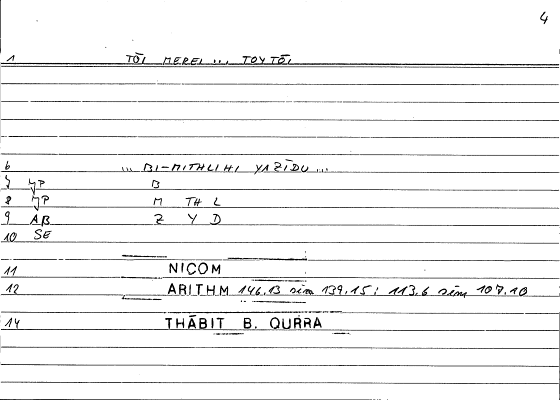 4
1 TŌI MEREI ... TOYTŌI
6 ... BI-MITHLIHI YAZĪDU ...
7 JP B
8 JP M TH L
9 AB Z Y D
10 SE
11 NICOM
12 ARITHM 146.13 sim 139.15; 113.6 sim 107.10
14 THĀBIT B. QURRA